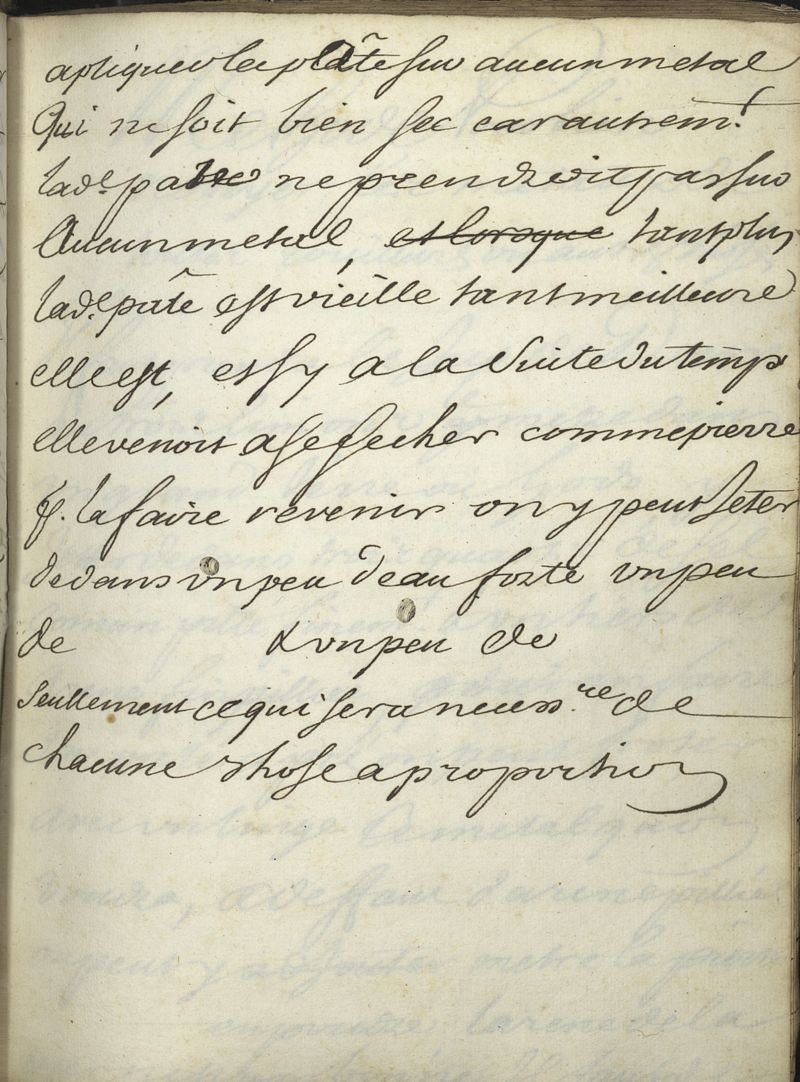 apliquer lea plâte sur aucun metal
Qui ne soit bien sec car autrem.t
lad.e pate ne prendroit pas sur
Aucun metal, ~~et lorsque~~ tant plus
lad.e pâte est vieille tant meilleure
elle est, et sy a la Suite du temp
elle venoit a se secher comme pierre
p. la faire revenir on y peut Jeter
dedans un peu d'eau forte un peu
de & un peu de
Seullement ce qui sera necess.re de
chacune chose a proportion